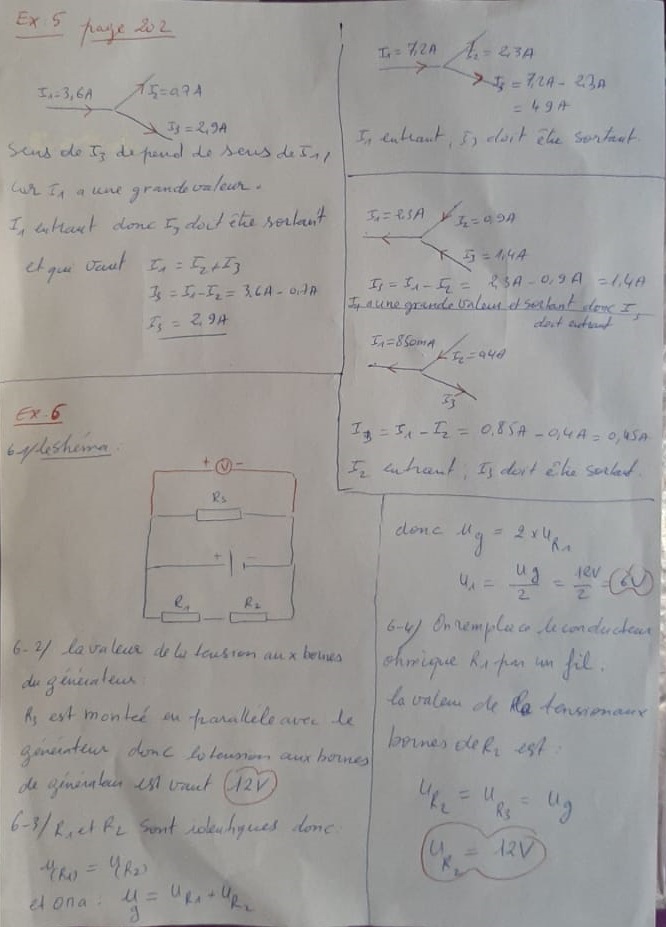 Ex. 5 page 202
I1=3,6A
I2=0,7A
I3=2,9A
Sens de I3 depend de sens de I1,
car I1 a une grande valeur.
I1 entrant donc I3 doit être sortant
et qui vaut I1 = I2+I3
I3 = I1-I2 = 3,6A - 0,7A
I3 = 2,9A
I1=7,2A
I2=2,3A
I3=7,2A-2,3A
= 4,9A
I1 entrant, I3 doit être sortant.
I1=2,3A
I2=0,9A
I3=1,4A
I3=I1-I2 = 2,3A-0,9A =1,4A
I1 a une grande valeur et sortant donc I3
doit entrant
I1=850mA
I2=0,4A
I3
I3=I1-I2 = 0,85A-0,4A=0,45A
I2 entrant, I3 doit être sortant.
Ex. 6
6-1/ Le shéma:
+ V -
R3
+ -
R1 R2
6-2/ la valeur de la tension aux bornes
du générateur:
R3 est montée en parallèle avec le
générateur donc la tension aux bornes
de générateur est vaut 12V
6-3/ R1 et R2 sont identiques donc:
u(R1) = u(R2)
et on a: ug = uR1 + uR2
donc ug = 2 x uR1
u1 = ug/2 = 12V/2 = 6V
6-4/ On remplace le conducteur
ohmique R1 par un fil.
la valeur de la tension aux
bornes de R2 est:
uR2 = uR3 = ug
uR2 = 12V